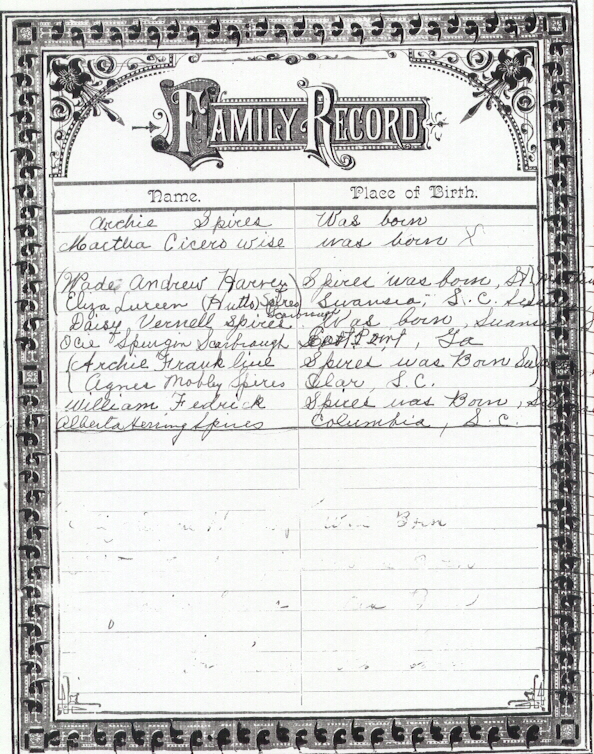 FAMILY RECORD
Name. Place of Birth.
Archie Spires Was born
Martha Cicero Wise was born X
(Wade Andrew Harvey) Spires was born,
Eliza Lureen (Hutto) Spires Swansea, S.C.
Daisy Vernell Spires Scarbrough Was born, Swansea
Ocie Spurgon Scarbrough Ga
(Archie Frankline Spires was Born
(Agnes Mobly Spires Olar, S.C. )
William Fedrick Spires was Born,
Alberta Hering Spires Columbia, S.C.
Was Born